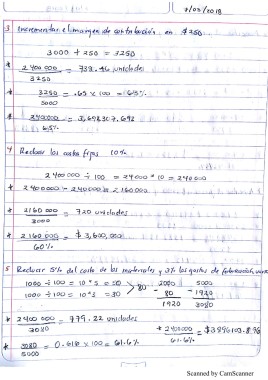 7/03/2018
3 Incrementar el margen de contribución en $250
3000 + 250 = 3250
* 2 400 000 / 3250 = 738.46 unidades
* 3250 / 5000 = .65 x 100 = 65%
* 2400000 / 65% = 3,692307.692
4 Reducir los costos fijos 10%
2 400 000 ÷ 100 = 24000 * 10 = 240000
* 2 400 000 - 240000 = 2 160 000
* 2160 000 / 3000 = 720 unidades
* 2 160 000 / 60% = $ 3,600,000
5 Reducir 5% del costo de los materiales y 3% los gastos de fabricación
1000 ÷ 100 = 10 * 5 = 50
1000 ÷ 100 = 10 * 3 = 30
> 80
2000 - 80 = 1920
5000 - 1920 = 3080
* 2 400 000 / 3080 = 779.22 unidades
* 2400000 / 61.6% = $3896103.896
* 3080 / 5000 = 0.616 x 100 = 61.6%
Scanned by CamScanner